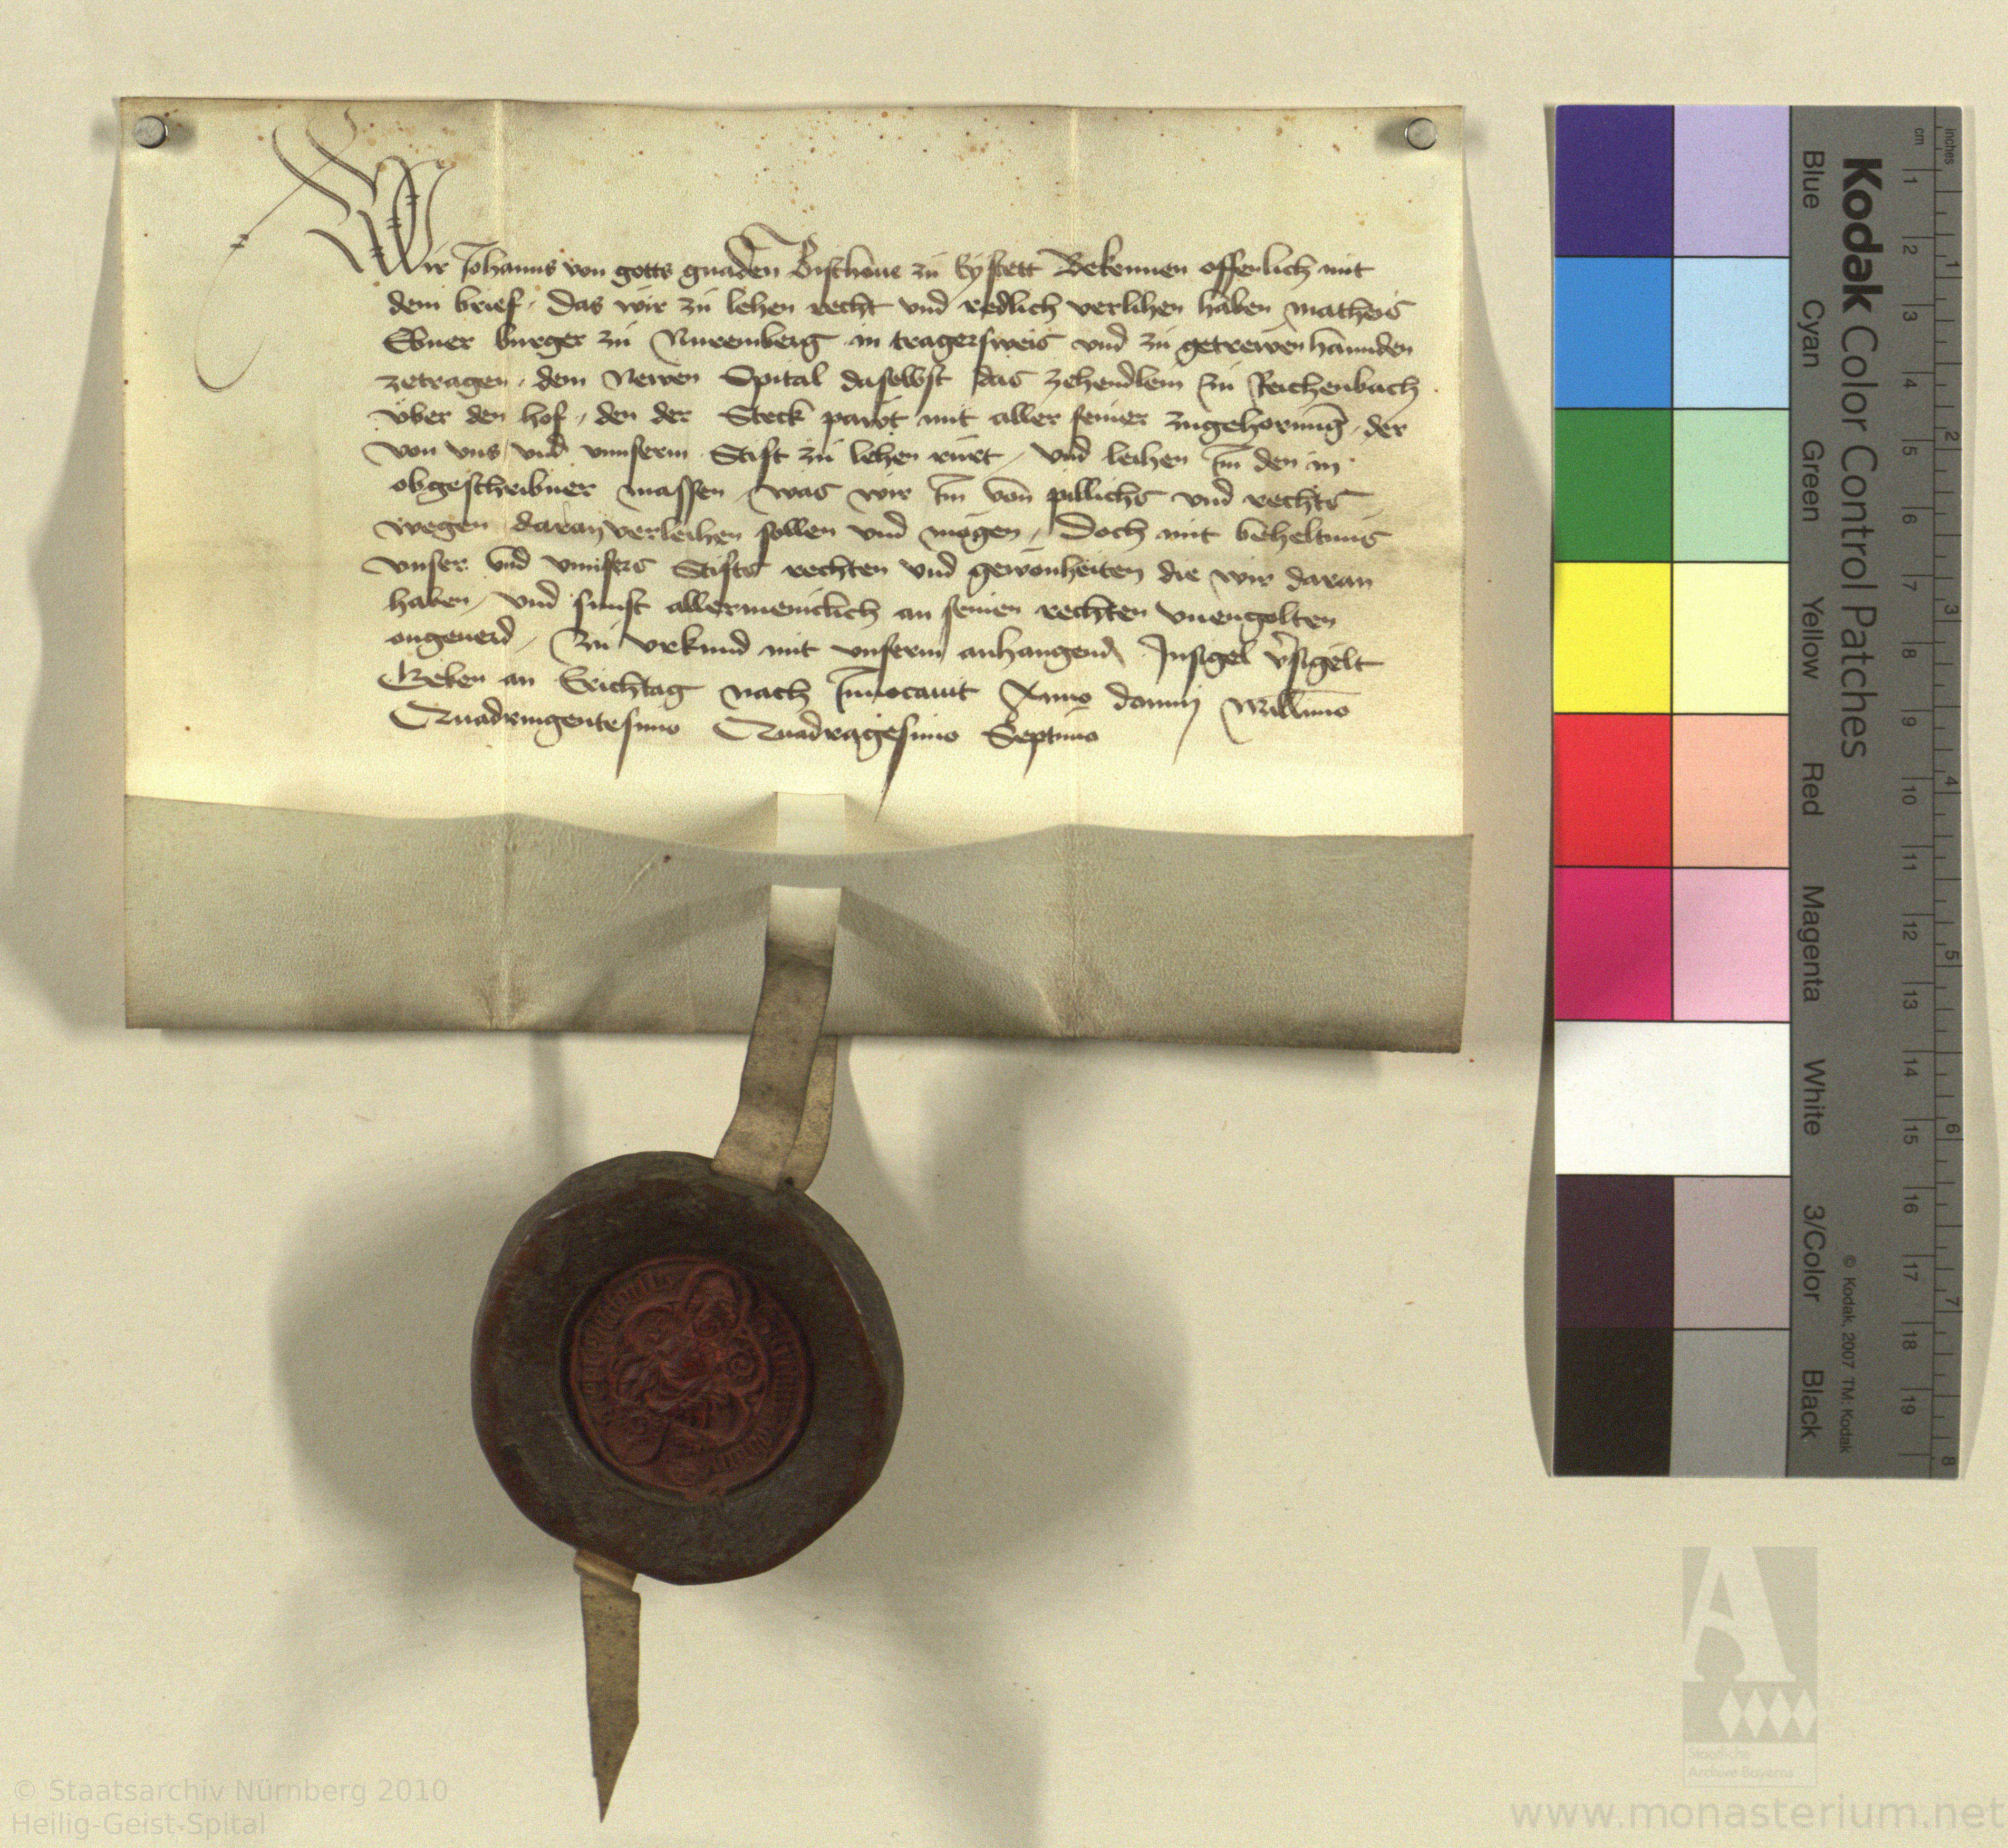 Wir Johanns von gotts gnaden Bischoue zu Eystett Bekennen offenlich mit
dem brief, Das wir zu lehen recht vnd redlich verlihen haben Matheis
Ebner burger zu Nuremberg in tragersweis vnd zu getrewen hannden
zetragen, dem Newen Spital daselbst das zehendlein zu Reichenbach
vber den hof, den der Steck pawt mit aller seiner zugehorung, der
von vns vnd vnnserm Stift zu lehen rürt, vnd leihen Im den in
obgeschribner massen, was wir Im von pillichs vnd rechts
wegen daran verleihen sollen vnd mogen, Doch mit beheltnus
vnser vnd vnnsers Stifts rechten vnd gewonheiten die wir daran
haben, vnd sunst allermeniclich an seinen rechten vnengolten
ongeuerd, Zu vrkund mit vnserm anhangend Insigel v̉sigelt
Geben an Erichtag nach Inuocauit Anno domini Millimo
Quadringentesimo Quadragesimo Septimo
Kodak Color Control Patches
Blue Cyan Green Yellow Red Magenta White 3/Color Black
© Kodak, 2007 TM: Kodak
cm 1 2 3 4 5 6 7 8 9 10 11 12 13 14 15 16 17 18 19
inches 1 2 3 4 5 6 7 8
Staatliche
Archive Bayerns
© Staatsarchiv Nürnberg 2010
Heilig-Geist-Spital
www.monasterium.net